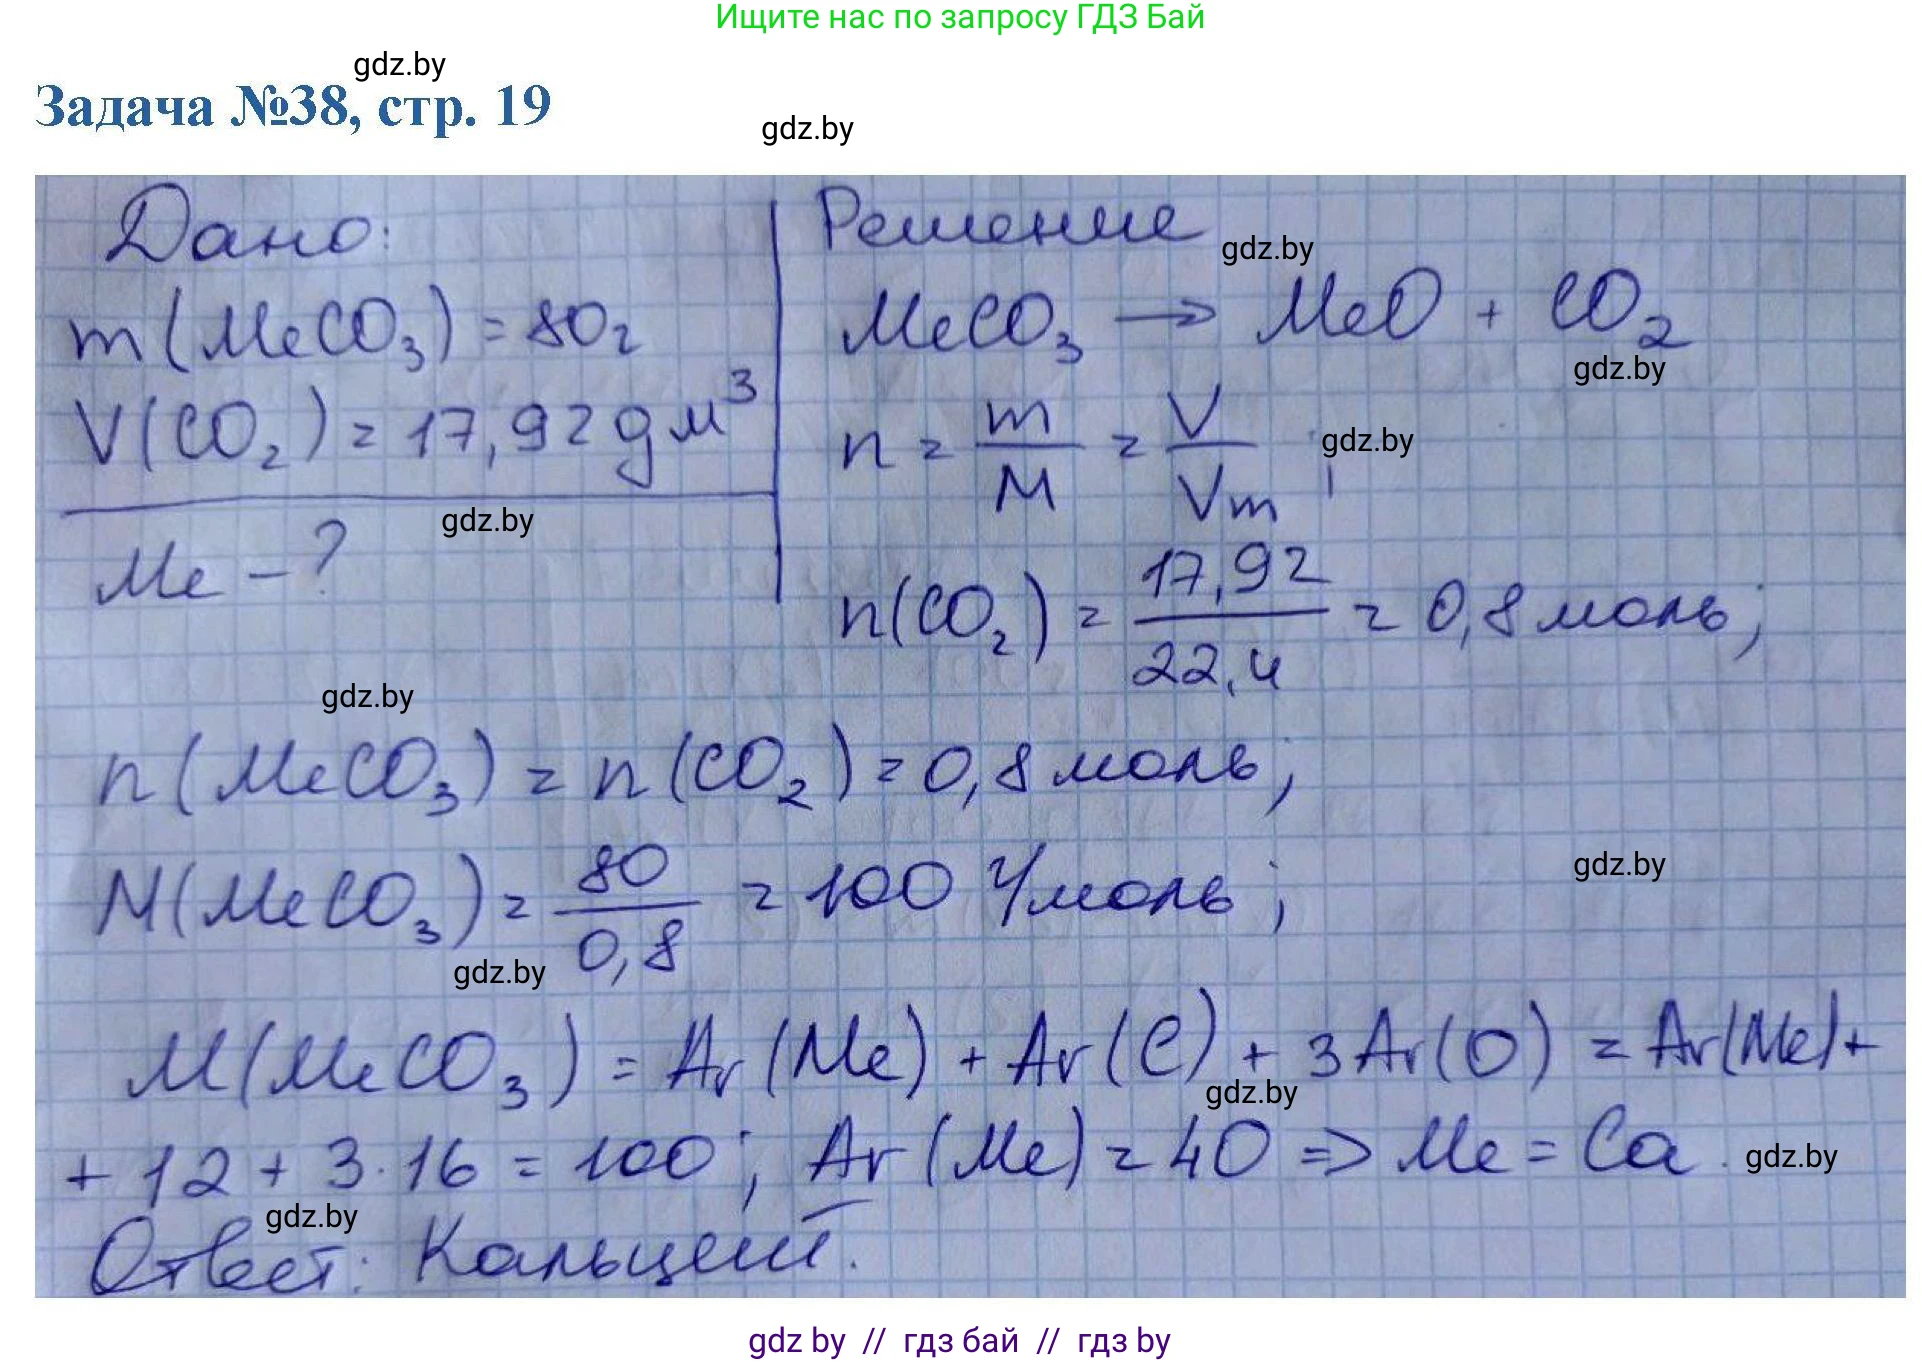 Ищите нас по запросу ГДЗ Бай
gdz.by
Задача №38, стр. 19
gdz.by
Дано:
m(MeCO₃) = 80г
V(CO₂) = 17,92 дм³
Me - ?
gdz.by
Решение
gdz.by
MeCO₃ → MeO + CO₂
gdz.by
n = m/M = V/Vm ;
gdz.by
n(CO₂) = 17,92/22,4 = 0,8 моль;
gdz.by
n(MeCO₃) = n(CO₂) = 0,8 моль;
M(MeCO₃) = 80/0,8 = 100 г/моль;
gdz.by
gdz.by
M(MeCO₃) = Ar(Me) + Ar(C) + 3Ar(O) = Ar(Me) +
gdz.by
+ 12 + 3·16 = 100; Ar(Me) = 40 => Me = Ca.
gdz.by
gdz.by
Ответ: Кальций.
gdz by // гдз бай // гдз by